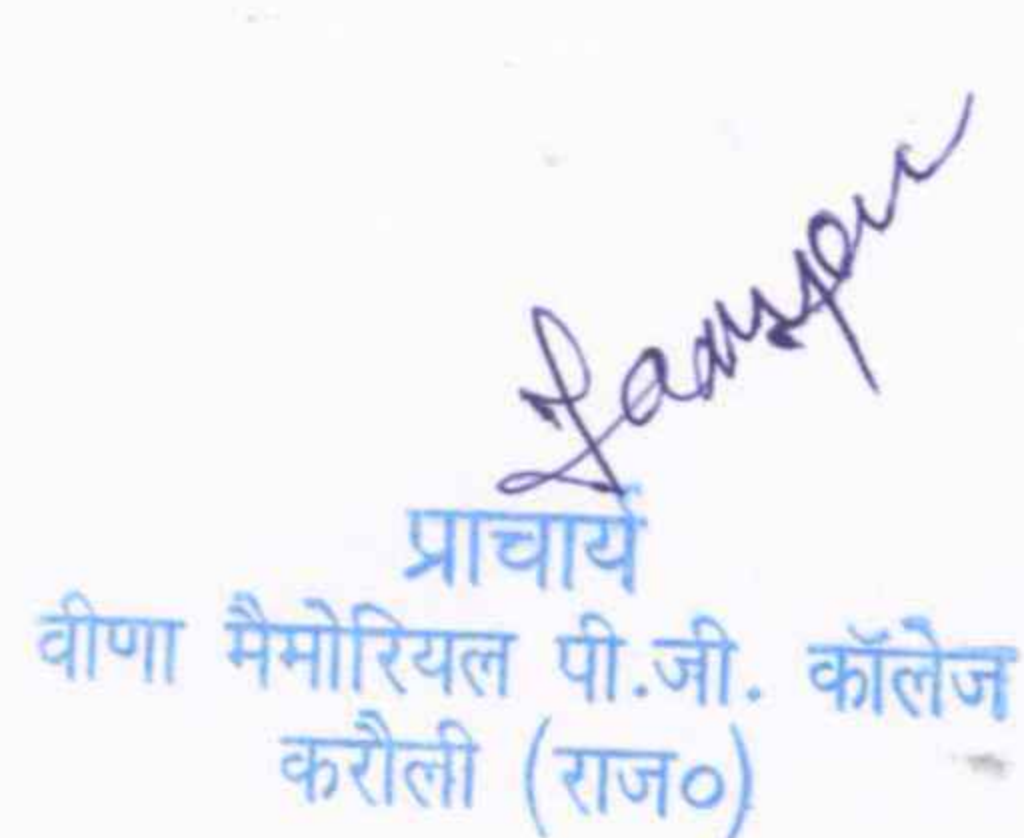 प्राचार्य
वीणा मैमोरियल पी.जी. कॉलेज
करौली (राज०)